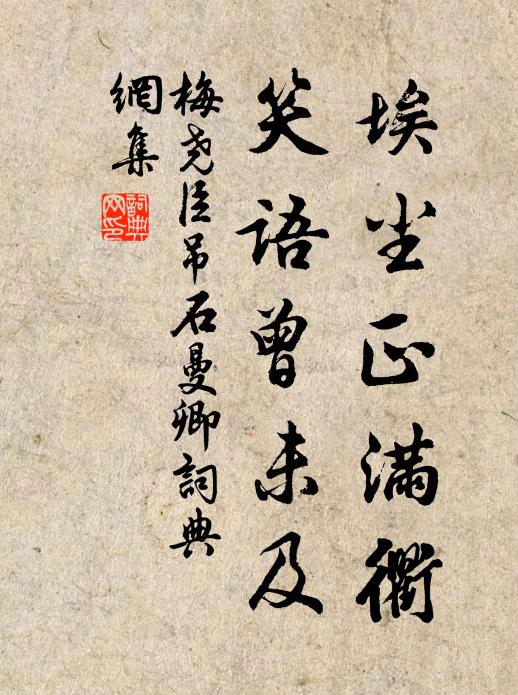 埃尘正滿衢
笑語曾未及
梅堯臣吊石曼卿詞典
網集
詞典
网印